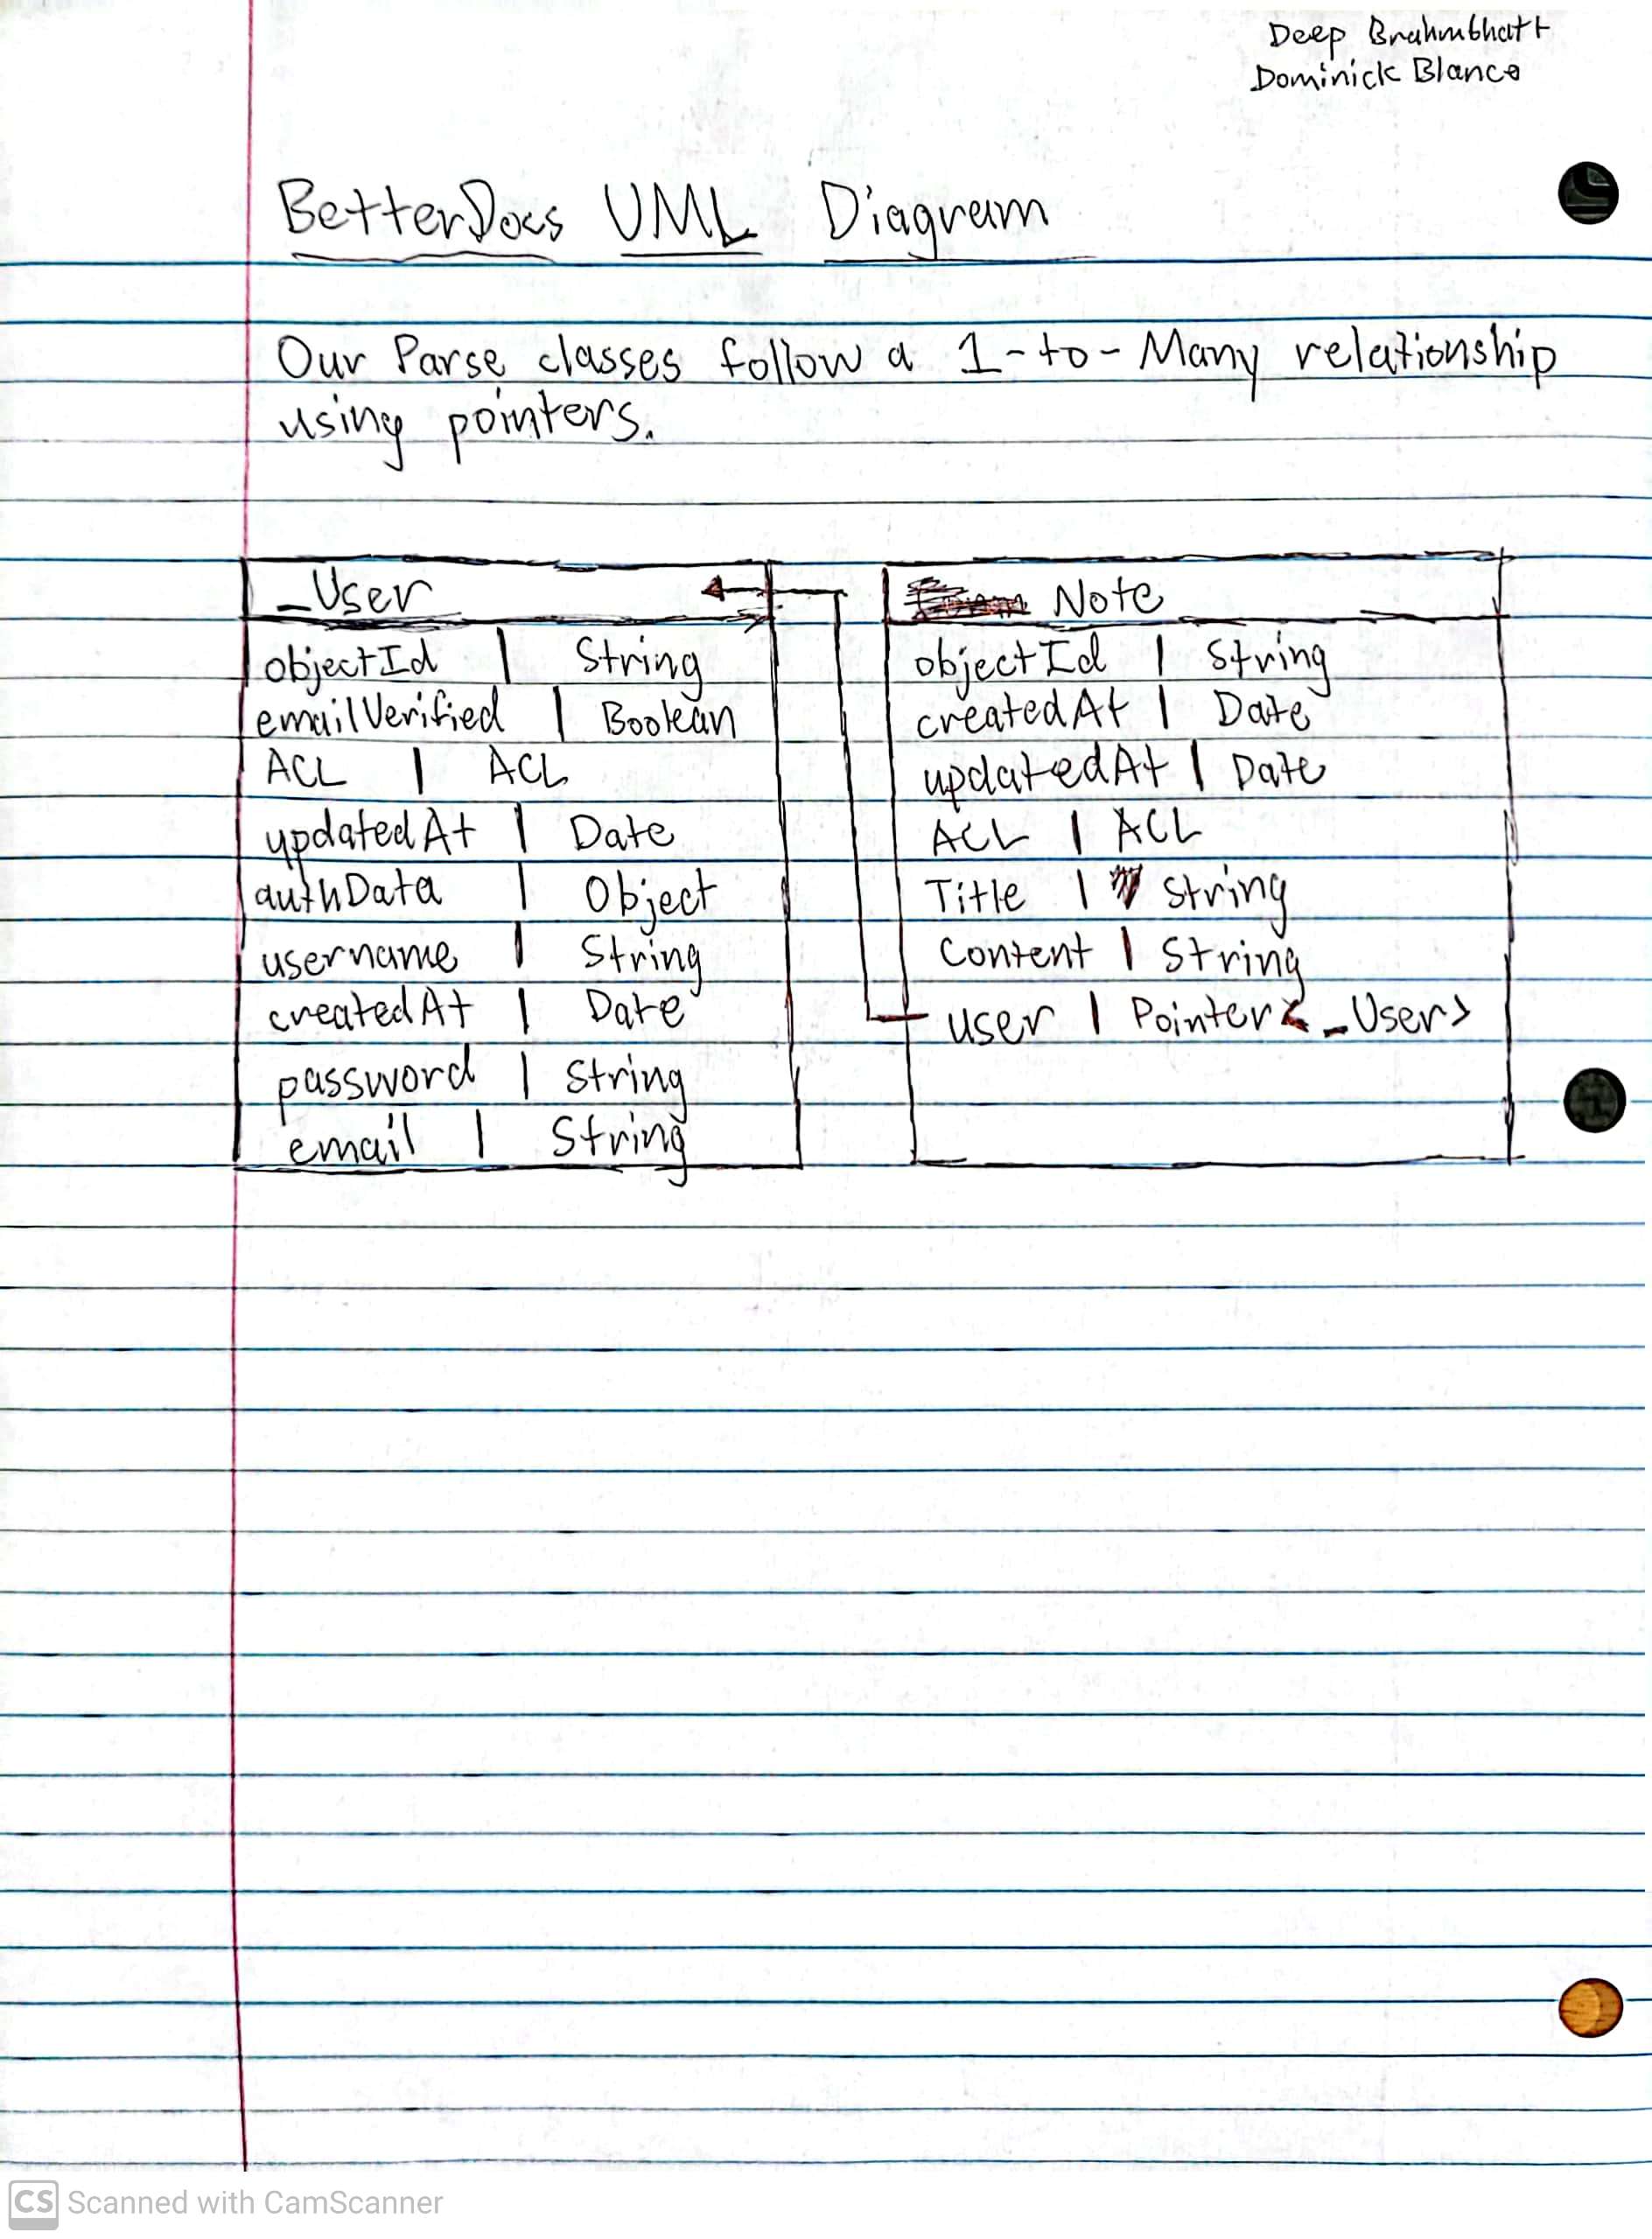 Deep Brahmbhatt
Dominick Blanco
BetterDocs UML Diagram
Our Parse classes follow a 1-to-Many relationship
using pointers.
_User
objectId | String
emailVerified | Boolean
ACL | ACL
updatedAt | Date
authData | Object
username | String
createdAt | Date
password | String
email | String
Note
objectId | String
createdAt | Date
updatedAt | Date
ACL | ACL
Title | String
Content | String
user | Pointer<_User>
CS Scanned with CamScanner